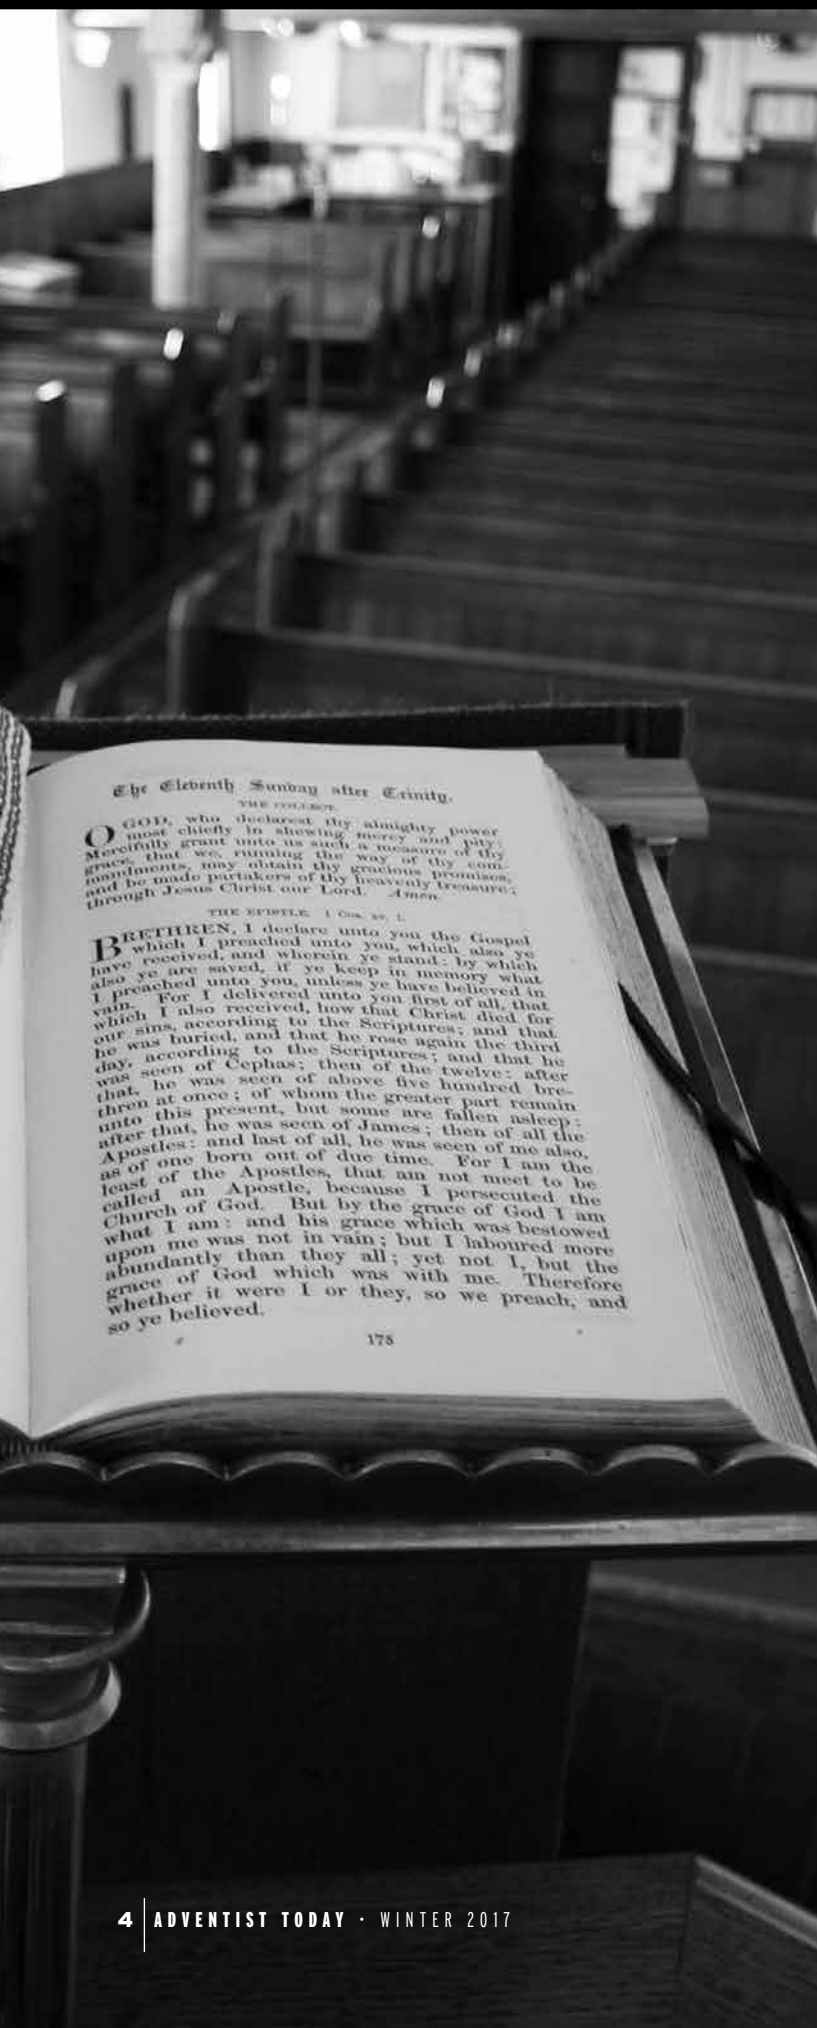 The Eleventh Sunday after Trinity.
THE COLLECT.
O GOD, who declarest thy almighty power
most chiefly in shewing mercy and pity;
Mercifully grant unto us such a measure of thy
grace, that we, running the way of thy com-
mandments, may obtain thy gracious promises,
and be made partakers of thy heavenly treasure;
through Jesus Christ our Lord. Amen.
THE EPISTLE. 1 Cor. xv. 1.
BRETHREN, I declare unto you the Gospel
which I preached unto you, which also ye
have received, and wherein ye stand: by which
also ye are saved, if ye keep in memory what
I preached unto you, unless ye have believed in
vain. For I delivered unto you first of all, that
which I also received, how that Christ died for
our sins, according to the Scriptures; and that
he was buried, and that he rose again the third
day, according to the Scriptures; and that he
was seen of Cephas; then of the twelve: after
that, he was seen of above five hundred bre-
thren at once; of whom the greater part remain
unto this present, but some are fallen asleep:
after that, he was seen of James; then of all the
Apostles: and last of all, he was seen of me also,
as of one born out of due time. For I am the
least of the Apostles, that am not meet to be
called an Apostle, because I persecuted the
Church of God. But by the grace of God I am
what I am: and his grace which was bestowed
upon me was not in vain; but I laboured more
abundantly than they all; yet not I, but the
grace of God which was with me. Therefore
whether it were I or they, so we preach, and
so ye believed.
178
4 ADVENTIST TODAY • WINTER 2017